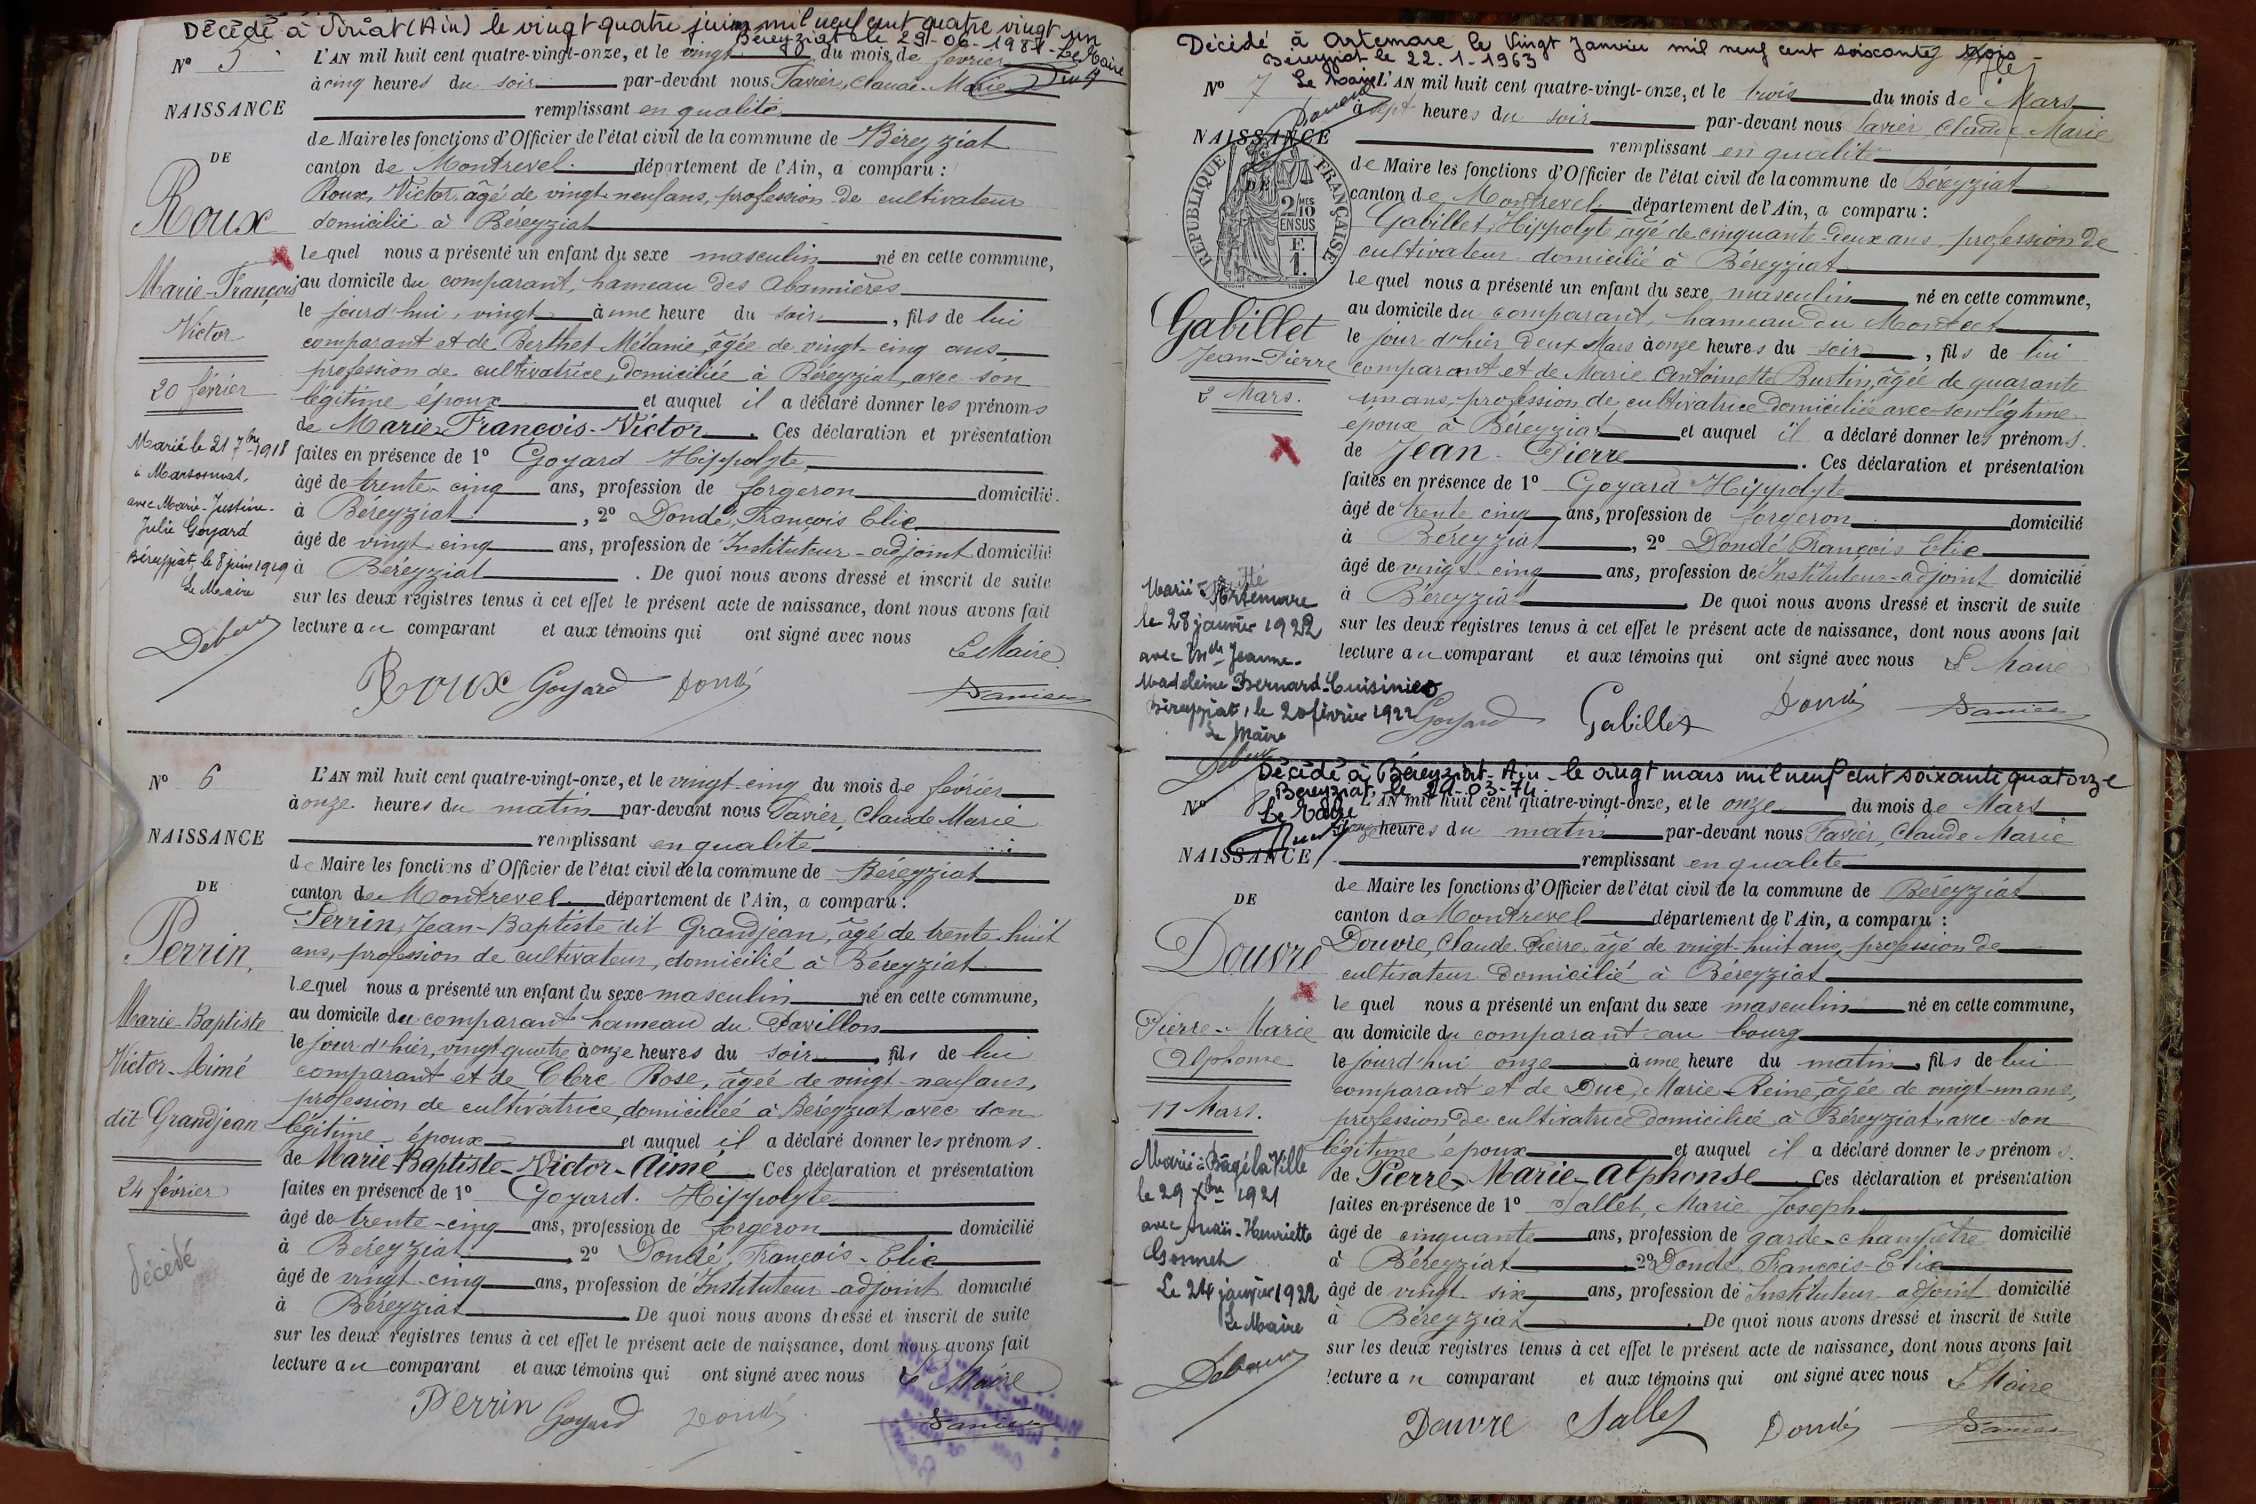 Décédé à Viriat (Ain) le vingt quatre juin mil neuf cent quatre vingt un
Béreyziat le 29-06-1981 - Le Maire
N° 5
NAISSANCE
DE
Roux
Marie-François
Victor
20 février
Marié le 21 7bre 1918
à Marsonnas,
avec Marie-Justine-
Julie Goyard
Béreyziat, le 8 juin 1919
Le Maire
L'AN mil huit cent quatre-vingt-onze, et le vingt du mois de février
à cinq heures du soir par-devant nous Favier, Claude-Marie
remplissant en qualité
de Maire les fonctions d'Officier de l'état civil de la commune de Béreyziat
canton de Montrevel département de l'Ain, a comparu :
Roux, Victor, âgé de vingt-neuf ans, profession de cultivateur
domicilié à Béreyziat
lequel nous a présenté un enfant du sexe masculin né en cette commune,
au domicile du comparant, hameau des
le jourd'hui, vingt à une heure du soir, fils de lui
comparant et de Berthet Mélanie, âgée de vingt-cinq ans,
profession de cultivatrice, domiciliée à Béreyziat, avec son
légitime époux et auquel il a déclaré donner les prénoms
de Marie-François-Victor. Ces déclaration et présentation
faites en présence de 1° Goyard Hippolyte,
âgé de trente-cinq ans, profession de forgeron domicilié
à Béreyziat, 2° Dondé, François Elie
âgé de vingt-cinq ans, profession de Instituteur-adjoint domicilié
à Béreyziat. De quoi nous avons dressé et inscrit de suite
sur les deux registres tenus à cet effet le présent acte de naissance, dont nous avons fait
lecture au comparant et aux témoins qui ont signé avec nous
Le Maire
Roux Goyard Dondé
N° 6
NAISSANCE
DE
Perrin,
Marie-Baptiste
Victor-Aimé
dit Grandjean
24 février
décédé
L'AN mil huit cent quatre-vingt-onze, et le vingt-cinq du mois de février
à onze heures du matin par-devant nous Favier, Claude Marie
remplissant en qualité
de Maire les fonctions d'Officier de l'état civil de la commune de Béreyziat
canton de Montrevel département de l'Ain, a comparu :
Perrin, Jean-Baptiste dit Grandjean, âgé de trente-huit
ans, profession de cultivateur, domicilié à Béreyziat
lequel nous a présenté un enfant du sexe masculin né en cette commune,
au domicile du comparant hameau du Pavillon
le jour d'hier, vingt quatre à onze heures du soir, fils de lui
comparant et de Clerc Rose, âgée de vingt-neuf ans,
profession de cultivatrice, domiciliée à Béreyziat avec son
légitime époux et auquel il a déclaré donner les prénoms
de Marie-Baptiste-Victor-Aimé. Ces déclaration et présentation
faites en présence de 1° Goyard. Hippolyte
âgé de trente-cinq ans, profession de forgeron domicilié
à Béreyziat 2° Dondé, François-Elie
âgé de vingt-cinq ans, profession de Instituteur-adjoint domicilié
à Béreyziat De quoi nous avons dressé et inscrit de suite
sur les deux registres tenus à cet effet le présent acte de naissance, dont nous avons fait
lecture au comparant et aux témoins qui ont signé avec nous
Le Maire
Perrin Goyard Dondé
Décédé à Artemare le Vingt Janvier mil neuf cent soixante trois
Béreyziat le 22.1.1963
Le Maire
N° 7
NAISSANCE
DE
REPUBLIQUE FRANÇAISE
2/10 EN SUS
F. 1.
Gabillet
Jean-Pierre
2 Mars.
Marié à Artemare
le 28 janvier 1922
avec Mlle Jeanne-
Madeleine Bernard-Cuisinier
Béreyziat, le 20 février 1922
Le Maire
L'AN mil huit cent quatre-vingt-onze, et le trois du mois de Mars
à sept heures du soir par-devant nous Favier Claude Marie
remplissant en qualité
de Maire les fonctions d'Officier de l'état civil de la commune de Béreyziat
canton de Montrevel département de l'Ain, a comparu :
Gabillet, Hippolyte âgé de cinquante-deux ans, profession de
cultivateur domicilié à Béreyziat
lequel nous a présenté un enfant du sexe masculin né en cette commune,
au domicile du comparant, hameau du
le jour d'hier deux Mars à onze heures du soir, fils de lui
comparant et de Marie Antoinette Burtin, âgée de quarante
un ans, profession de cultivatrice domiciliée avec son légitime
époux à Béreyziat et auquel il a déclaré donner les prénoms
de Jean-Pierre. Ces déclaration et présentation
faites en présence de 1° Goyard Hippolyte
âgé de trente cinq ans, profession de forgeron domicilié
à Béreyziat, 2° Dondé François Elie
âgé de vingt-cinq ans, profession de Instituteur-adjoint domicilié
à Béreyziat De quoi nous avons dressé et inscrit de suite
sur les deux registres tenus à cet effet le présent acte de naissance, dont nous avons fait
lecture au comparant et aux témoins qui ont signé avec nous Le Maire
Goyard Gabillet Dondé
Décédé à Béreyziat-Ain le vingt mars mil neuf cent soixante quatorze
Béreyziat, le 21-03-74
Le Maire
N° 8
NAISSANCE
DE
Douvre
Pierre-Marie
Alphonse
11 Mars.
Marié à Bâgé la Ville
le 29 Xbre 1921
avec Henriette
Gonnet
Le 24 janvier 1922
Le Maire
L'AN mil huit cent quatre-vingt-onze, et le onze du mois de Mars
heures du matin par-devant nous Favier, Claude Marie
remplissant en qualité
de Maire les fonctions d'Officier de l'état civil de la commune de Béreyziat
canton de Montrevel département de l'Ain, a comparu :
Douvre, Claude Pierre âgé de vingt-huit ans, profession de
cultivateur domicilié à Béreyziat
lequel nous a présenté un enfant du sexe masculin né en cette commune,
au domicile du comparant au bourg
le jourd'hui onze à une heure du matin, fils de lui
comparant et de Duc, Marie-Reine, âgée de vingt-un ans,
profession de cultivatrice domiciliée à Béreyziat avec son
légitime époux et auquel il a déclaré donner les prénoms.
de Pierre-Marie-Alphonse Ces déclaration et présentation
faites en présence de 1° Sallet, Marie Joseph
âgé de cinquante ans, profession de garde-champêtre domicilié
à Béreyziat 2° Dondé François-Elie
âgé de vingt-six ans, profession de Instituteur-adjoint domicilié
à Béreyziat. De quoi nous avons dressé et inscrit de suite
sur les deux registres tenus à cet effet le présent acte de naissance, dont nous avons fait
lecture au comparant et aux témoins qui ont signé avec nous Le Maire
Douvre Sallet Dondé